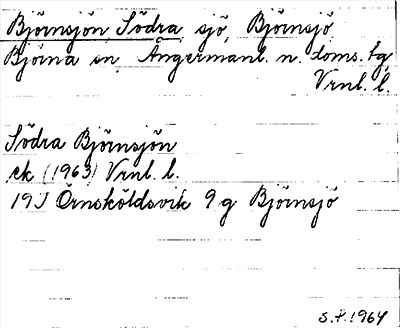 Björnsjön, Södra, sjö, Björnsjö,
Björna sn, Ångermanl. n. doms. tg,
Vrnl. l.
Södra Björnsjön
ek (1963) Vrnl. l.
19J Örnsköldsvik 9g Björnsjö
S.F. 1964